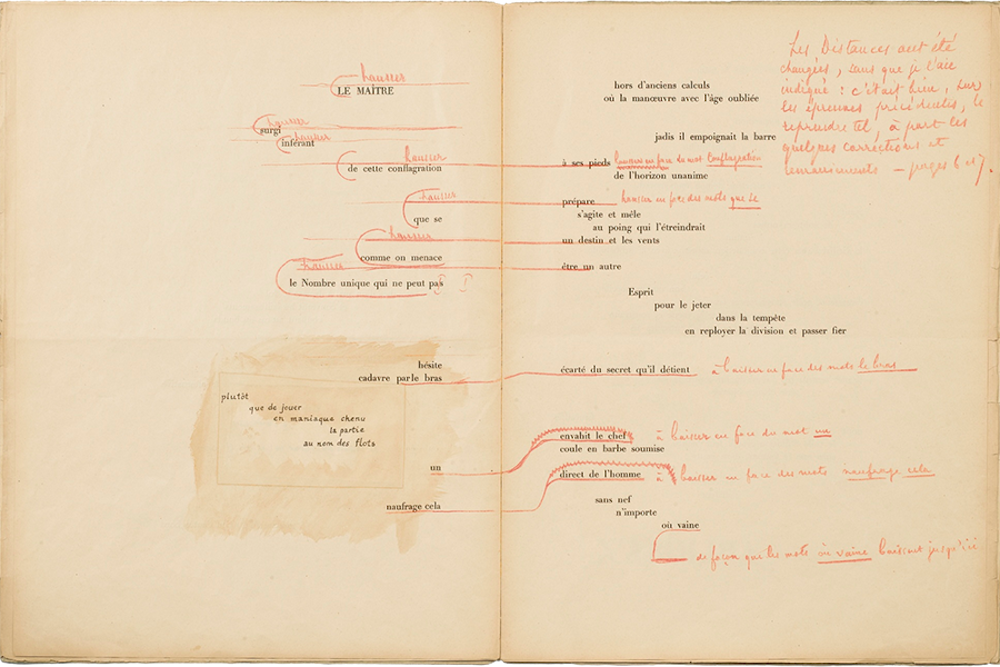 hausser
LE MAÎTRE
hausser
surgi
hausser
inférant
hausser
de cette conflagration
hausser
que se
hausser
comme on menace
hausser
le Nombre unique qui ne peut pas
hésite
cadavre par le bras
plutôt
que de jouer
en maniaque chenu
la partie
au nom des flots
un
naufrage cela
Les Distances ont été
changées, sans que je l'aie
indiqué : c'était bien, sur
les épreuves précédentes, le
reprendre tel, à part les
quelques corrections et
remaniements — pages 6 et 7.
hors d'anciens calculs
où la manœuvre avec l'âge oubliée
jadis il empoignait la barre
à ses pieds hausser en face du mot Conflagration
de l'horizon unanime
prépare hausser en face des mots que se
s'agite et mêle
au poing qui l'étreindrait
un destin et les vents
être un autre
Esprit
pour le jeter
dans la tempête
en reployer la division et passer fier
écarté du secret qu'il détient à baisser en face des mots le bras
envahit le chef à baisser en face du mot un
coule en barbe soumise
direct de l'homme à baisser en face des mots naufrage cela
sans nef
n'importe
où vaine
de façon que les mots où vaine baissent jusqu'ici